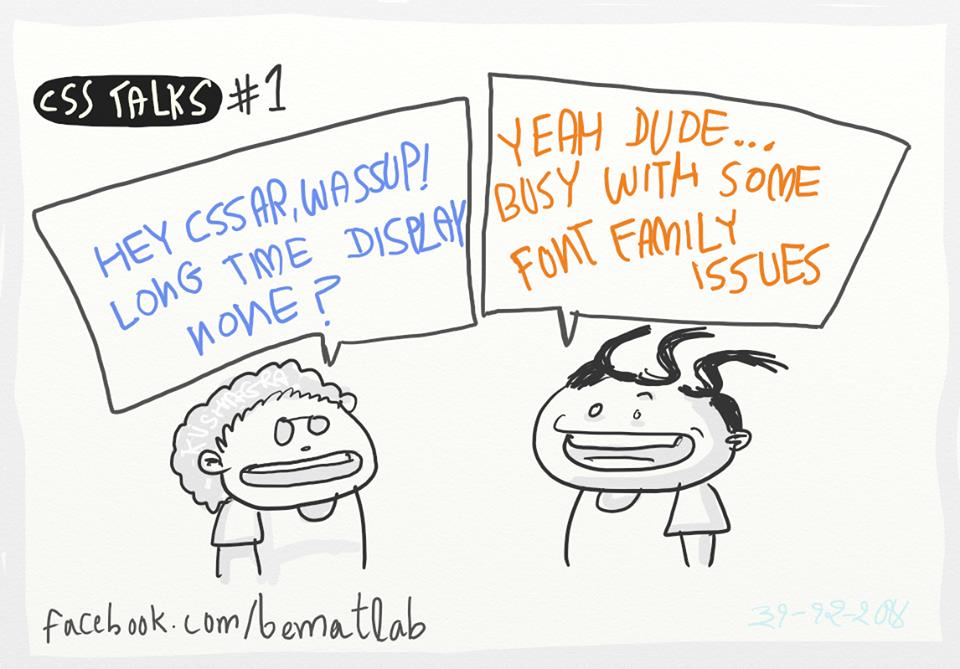 CSS TALKS #1
HEY CSSAR, WASSUP!
LONG TIME DISPLAY
NONE?
YEAH DUDE...
BUSY WITH SOME
FONT FAMILY
ISSUES
CSS
facebook.com/bematlab